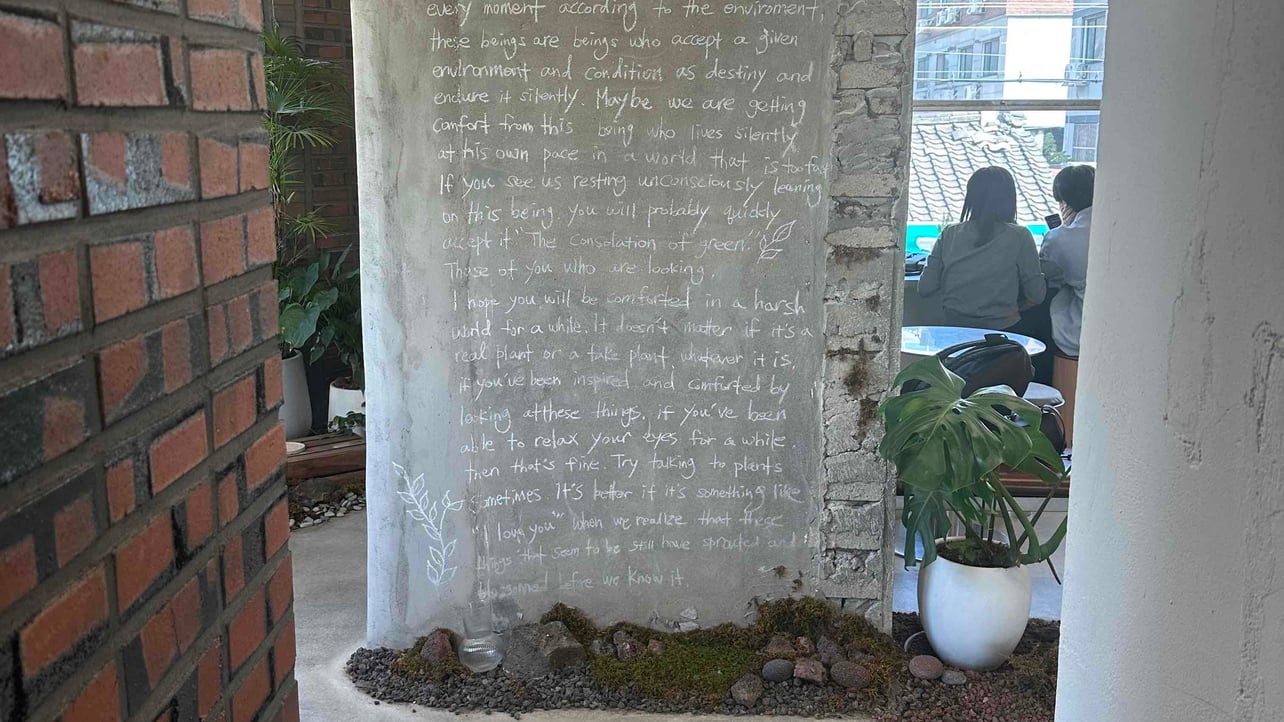 every moment according to the enviroment,
these beings are beings who accept a given
environment and condition as destiny and
endure it silently. Maybe we are getting
comfort from this being who lives silently
at his own pace in a world that is too fast
If you see us resting unconsciously leaning
on this being, you will probably quickly
accept it "The consolation of green."
Those of you who are looking,
I hope you will be comforted in a harsh
world for a while. It doesn't matter if it's a
real plant or a fake plant, whatever it is,
if you've been inspired and comforted by
looking at these things, if you've been
able to relax your eyes for a while,
then that's fine. Try talking to plants
sometimes. It's better if it's something like
"I love you" When we realize that these
things that seem to be still have sprouted and
blossomed before we know it.